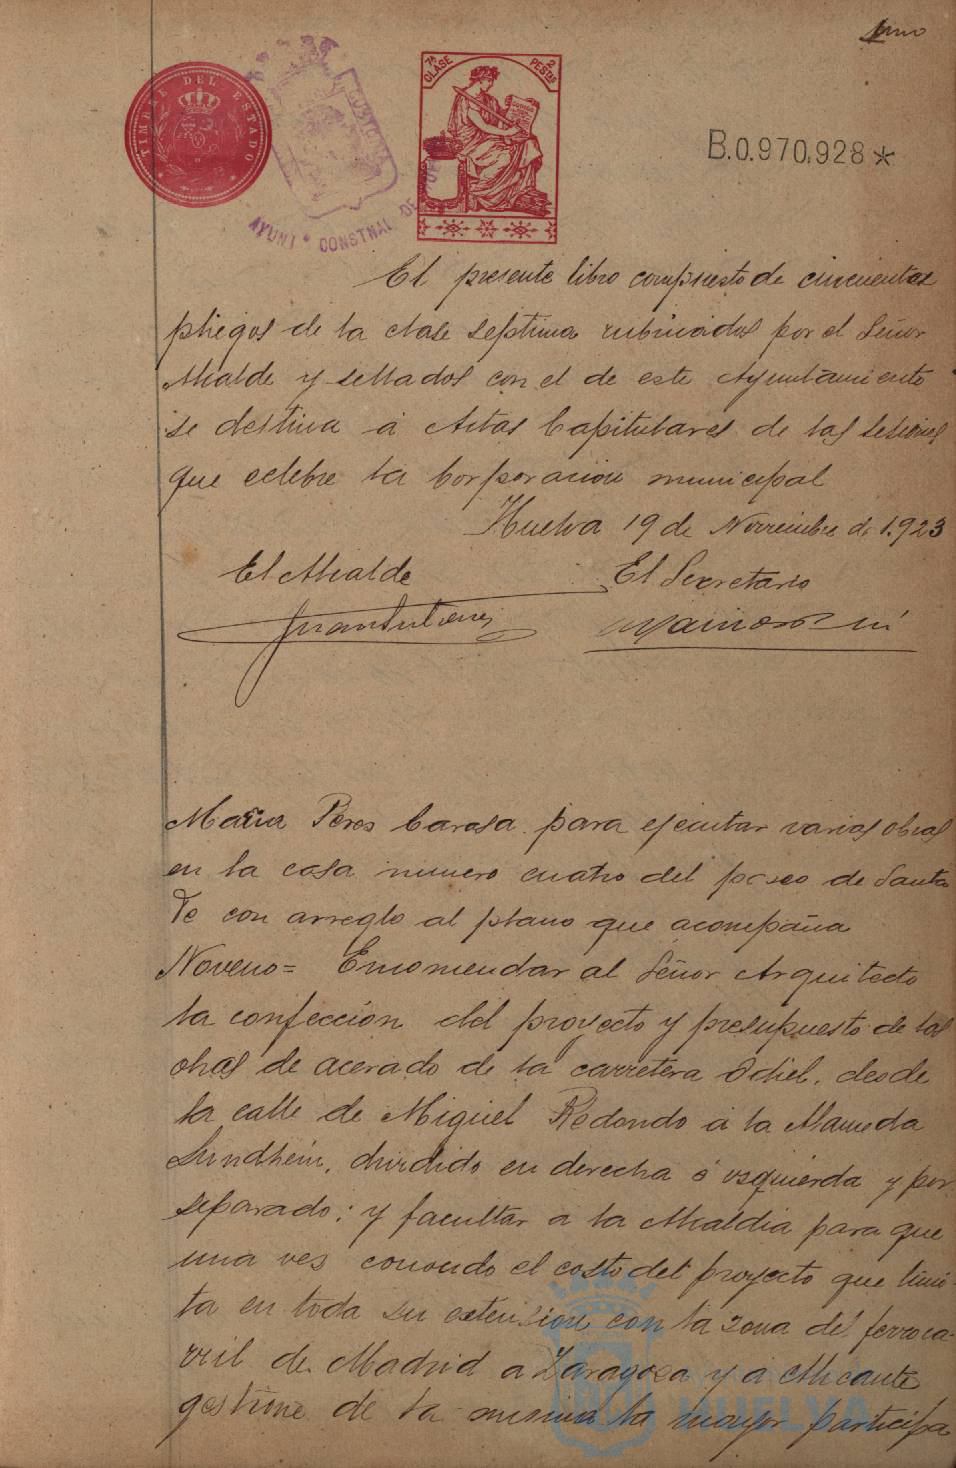 uno
TIMBRE DEL ESTADO
7ª CLASE
2 PESTAS
AYUNTº CONSTNAL DE
B.0.970,928*
El presente libro compuesto de cincuenta
pliegos de la clase septima rubricados por el Señor
Alcalde y sellados con el de este Ayuntamiento
se destina á Actas Capitulares de las sesiones
que celebre la Corporacion municipal
Huelva 19 de Noviembre de 1.923
El Alcalde
El Secretario
Maria Peres Carosa para ejecutar varias obras
en la casa numero cuatro del paseo de Santa
Fe con arreglo al plano que acompaña
Noveno= Encomendar al Señor Arquitecto
la confección del proyecto y presupuesto de las
obras de acerado de la carretera Odiel, desde
la calle de Miguel Redondo á la Alameda
Sundhein, dividido en derecha é izquierda y por
separado; y facultar a la Alcaldia para que
una ves conocido el costo del proyecto que limi-
ta en toda su extension con la zona del ferroca-
rril de Madrid a Zaragosa y á Alicante
gestione de la misma la mayor participa
HUELVA